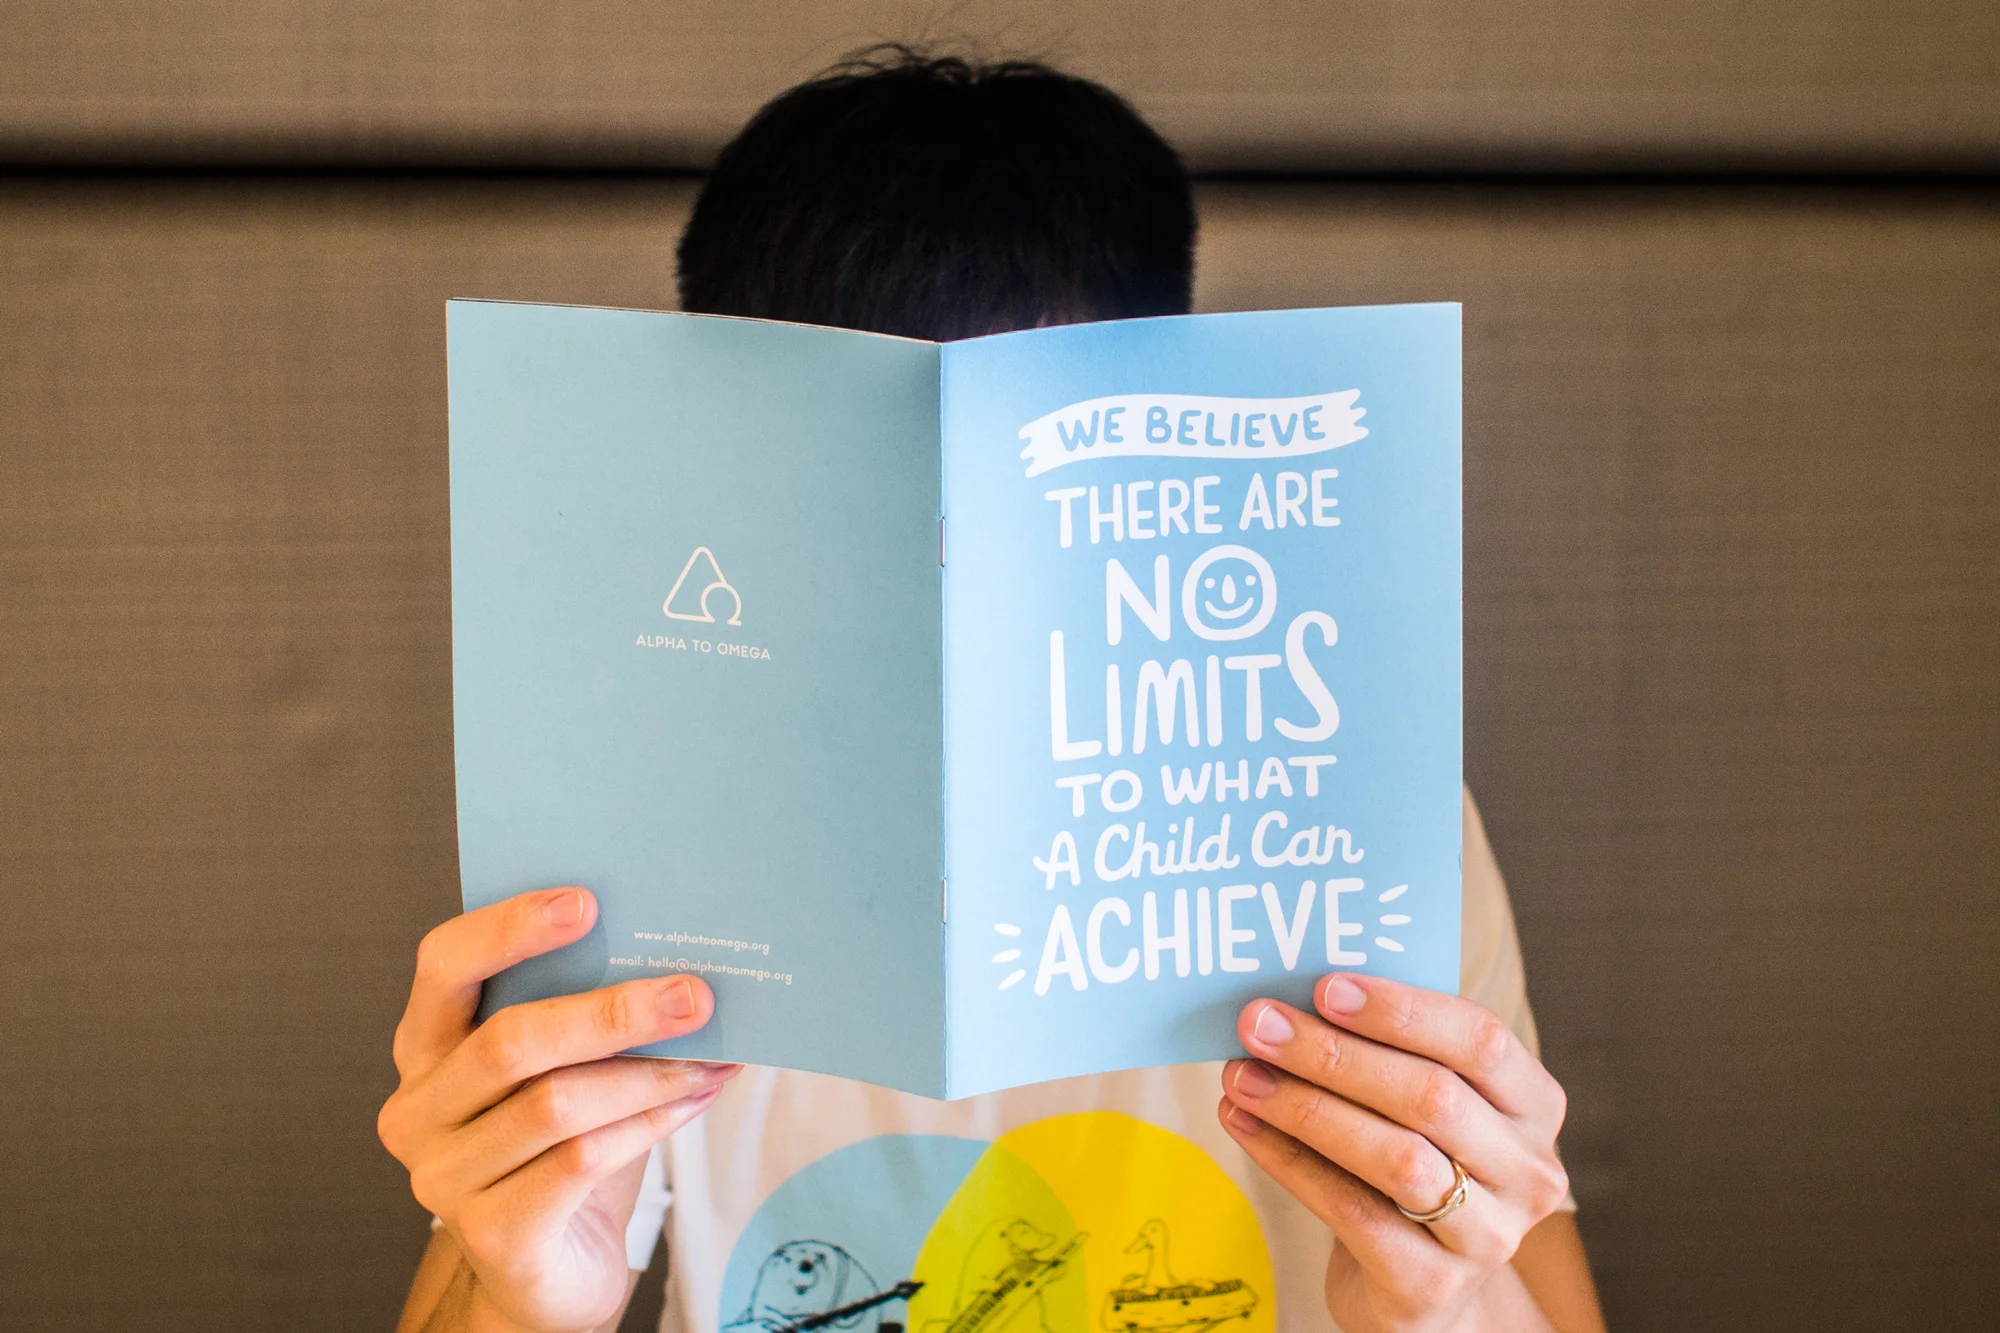 ALPHA TO OMEGA
www.alphatoomega.org
email: hello@alphatoomega.org
WE BELIEVE
THERE ARE
NO
LIMITS
TO WHAT
A Child Can
ACHIEVE